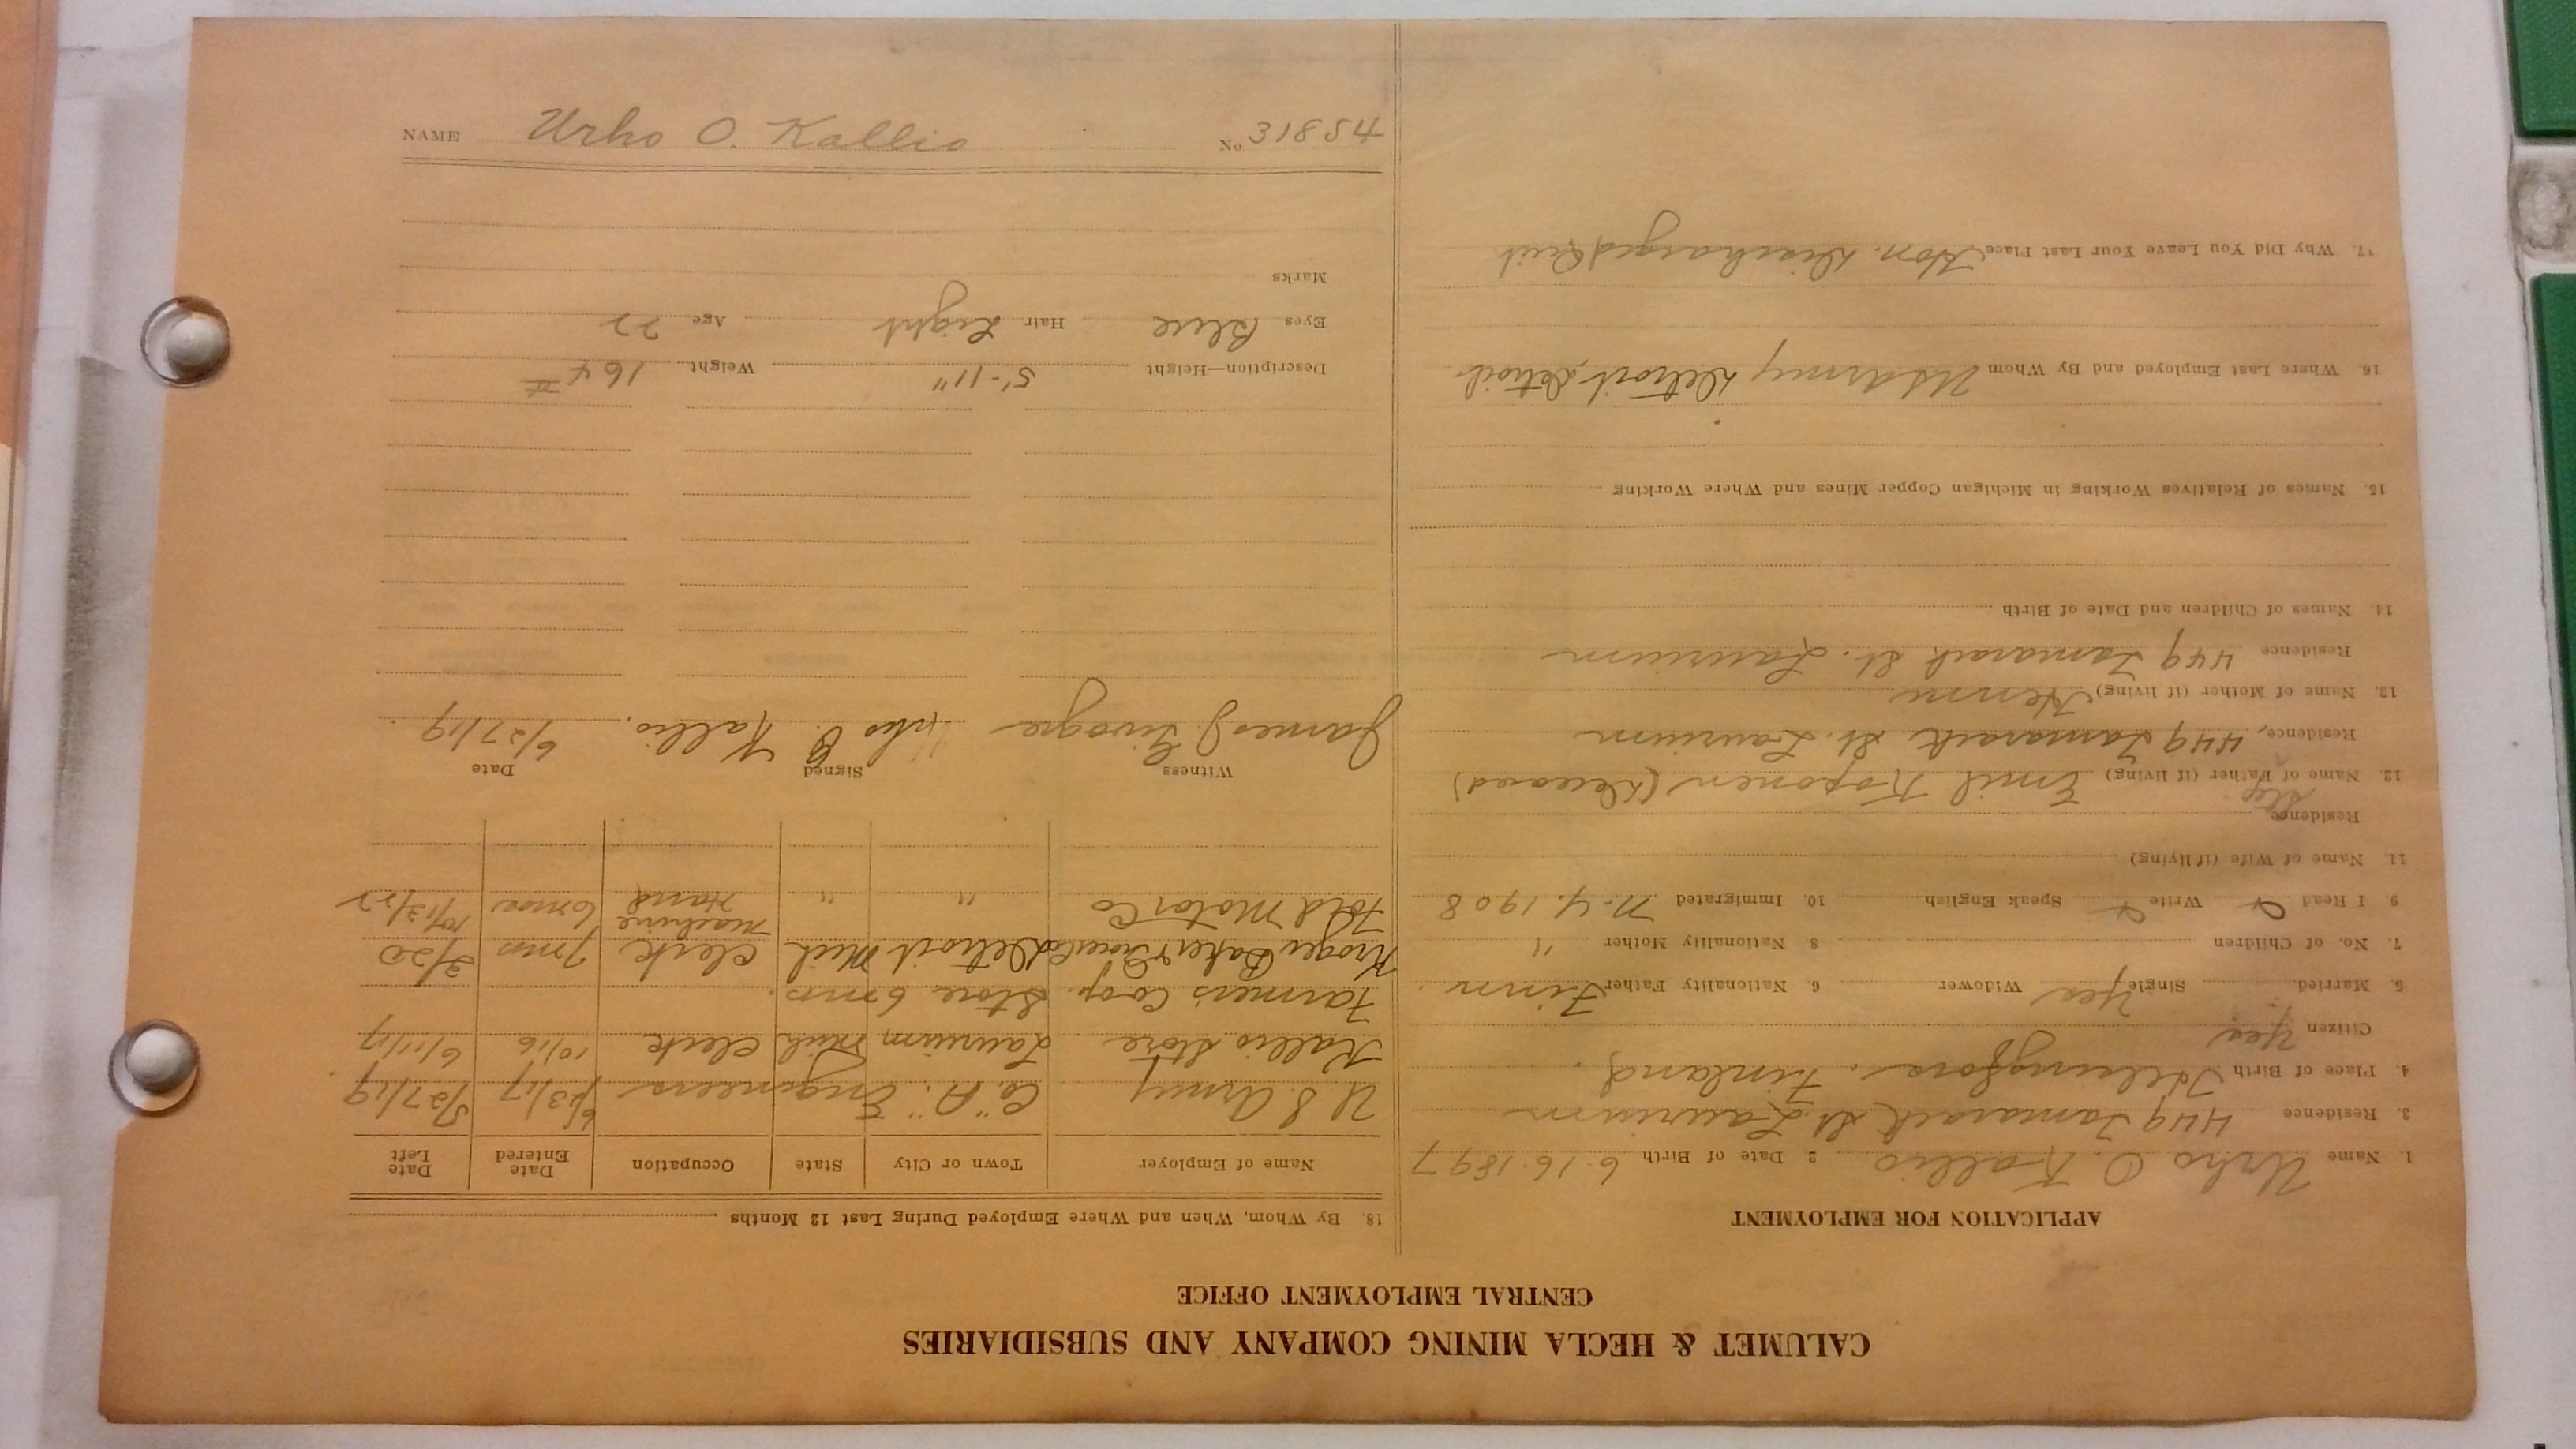 CALUMET & HECLA MINING COMPANY AND SUBSIDIARIES
CENTRAL EMPLOYMENT OFFICE
APPLICATION FOR EMPLOYMENT
1. Name Urho O. Kallio 2. Date of Birth 6-16-1897
3. Residence 449 Tamarack St. Laurium
4. Place of Birth Helsingfors, Finland.
Citizen Yes
5. Married Single Yes Widower 6. Nationality Father Finn
7. No. of Children 8. Nationality Mother "
9. I Read Write Speak English 10. Immigrated N.Y. 1908
11. Name of Wife (if living)
Residence
Step
12. Name of Father (if living) Emil Koponen (Deceased)
Residence 449 Tamarack St. Laurium
13. Name of Mother (if living)
Residence 449 Tamarack St. Laurium
14. Names of Children and Date of Birth
15. Names of Relatives Working in Michigan Copper Mines and Where Working
16. Where Last Employed and By Whom US Army Detroit, Detroit
17. Why Did You Leave Your Last Place Hon. Discharged Quit
18. By Whom, When and Where Employed During Last 12 Months
Name of Employer Town or City State Occupation Date Entered Date Left
U.S. Army Co. "A" Engineers 6/23/17 5/27/19
Kallio Store Laurium Mich Clerk 10/16 6/11/17
Farmers Co-op. Store 6 mos.
Kroger Baker & Detroit Mich Clerk 7 mos 3/20
Ford Motor Co " " Machine Hand 6 mos 10/13/22
Witness Signed Date
James J. Urho O. Kallio. 6/27/19.
Description—Height 5'-11" Weight 164 #
Eyes Blue Hair Light Age 22
Marks
NAME Urho O. Kallio No 31854